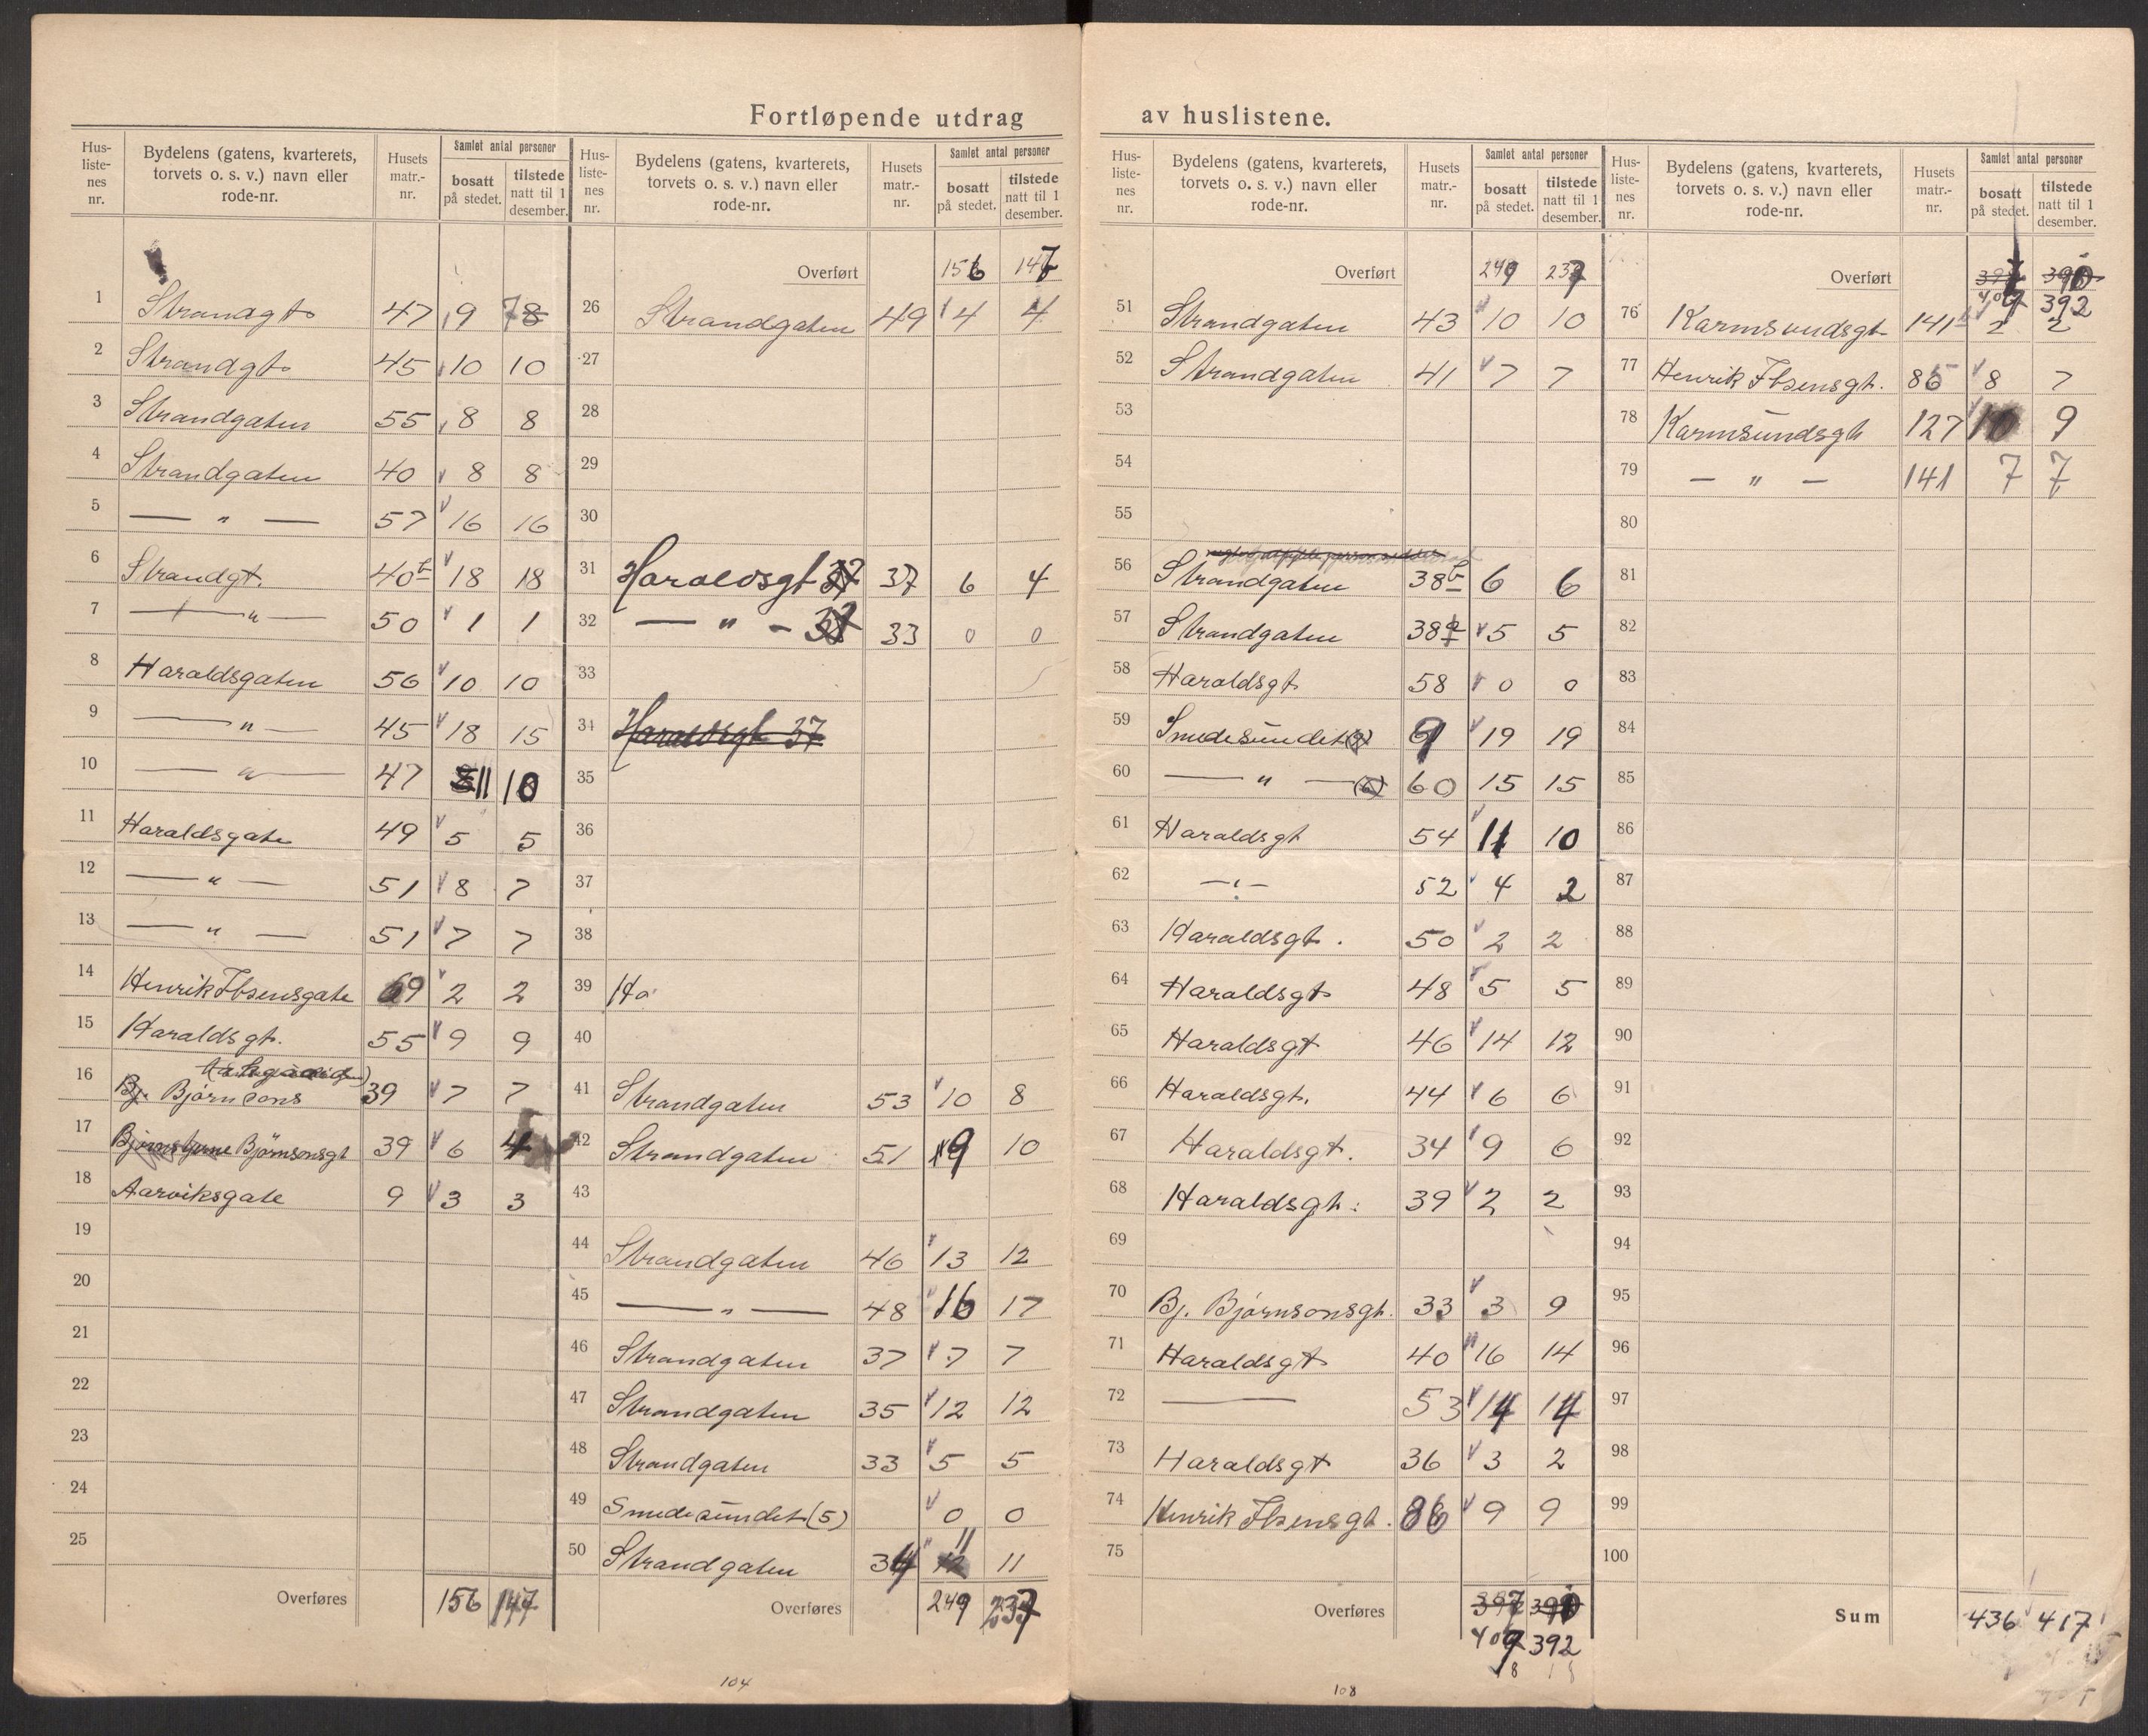 Fortløpende utdrag av huslistene.
Hus-listenes nr. | Bydelens (gatens, kvarterets, torvets o. s. v.) navn eller rode-nr. | Husets matr.-nr. | Samlet antal personer bosatt på stedet. | tilstede natt til 1 desember.
1 Strandgt 47 9 7
2 Strandgt. 45 10 10
3 Strandgaten 55 8 8
4 Strandgaten 40 8 8
5 — " — 57 16 16
6 Strandgt. 40b 18 18
7 — " — 50 1 1
8 Haraldsgaten 56 10 10
9 — " — 45 18 15
10 — " — 47 11 10
11 Haraldsgate 49 5 5
12 — " — 51 8 7
13 — " — 51 7 7
14 Henrik Ibsensgate 69 2 2
15 Haraldsgt. 55 9 9
16 Bj. Bjørnsons 39 7 7
17 Bjørnstjerne Bjørnsonsgt 39 6 4
18 Aarviksgate 9 3 3
19
20
21
22
23
24
25
Overføres 156 147
Hus-listenes nr. | Bydelens (gatens, kvarterets, torvets o. s. v.) navn eller rode-nr. | Husets matr.-nr. | Samlet antal personer bosatt på stedet. | tilstede natt til 1 desember.
Overført 156 147
26 Strandgaten 49 4 4
27
28
29
30
31 Haraldsgt 37 37 6 4
32 — " — 33 0 0
33
34 Haraldsgt 37
35
36
37
38
39 Ha
40
41 Strandgaten 53 10 8
42 Strandgaten 51 9 10
43
44 Strandgaten 46 13 12
45 — " — 48 16 17
46 Strandgaten 37 7 7
47 Strandgaten 35 12 12
48 Strandgaten 33 5 5
49 Smedesundet (5) 0 0
50 Strandgaten 34 11 11
Overføres 249 237
104
Hus-listenes nr. | Bydelens (gatens, kvarterets, torvets o. s. v.) navn eller rode-nr. | Husets matr.-nr. | Samlet antal personer bosatt på stedet. | tilstede natt til 1 desember.
Overført 249 237
51 Strandgaten 43 10 10
52 Strandgaten 41 7 7
53
54
55
56 Strandgaten 38b 6 6
57 Strandgaten 38a 5 5
58 Haraldsgt 58 0 0
59 Smedesundet 19 19
60 — " — 60 15 15
61 Haraldsgt 54 11 10
62 — " — 52 4 2
63 Haraldsgt. 50 2 2
64 Haraldsgt 48 5 5
65 Haraldsgt 46 14 12
66 Haraldsgt. 44 6 6
67 Haraldsgt. 34 9 6
68 Haraldsgt. 39 2 2
69
70 Bj. Bjørnsonsgt. 33 3 9
71 Haraldsgt 40 16 14
72 — 53 14 14
73 Haraldsgt 36 3 2
74 Henrik Ibsensgt. 86 9 9
75
Overføres 397 390
409 392
108
Hus-listenes nr. | Bydelens (gatens, kvarterets, torvets o. s. v.) navn eller rode-nr. | Husets matr.-nr. | Samlet antal personer bosatt på stedet. | tilstede natt til 1 desember.
Overført 397 390
409 392
76 Karmsundsgt 141b 2 2
77 Henrik Ibsensgt. 86 8 7
78 Karmsundsgt 127 10 9
79 — " — 141 7 7
80
81
82
83
84
85
86
87
88
89
90
91
92
93
94
95
96
97
98
99
100
Sum 436 417